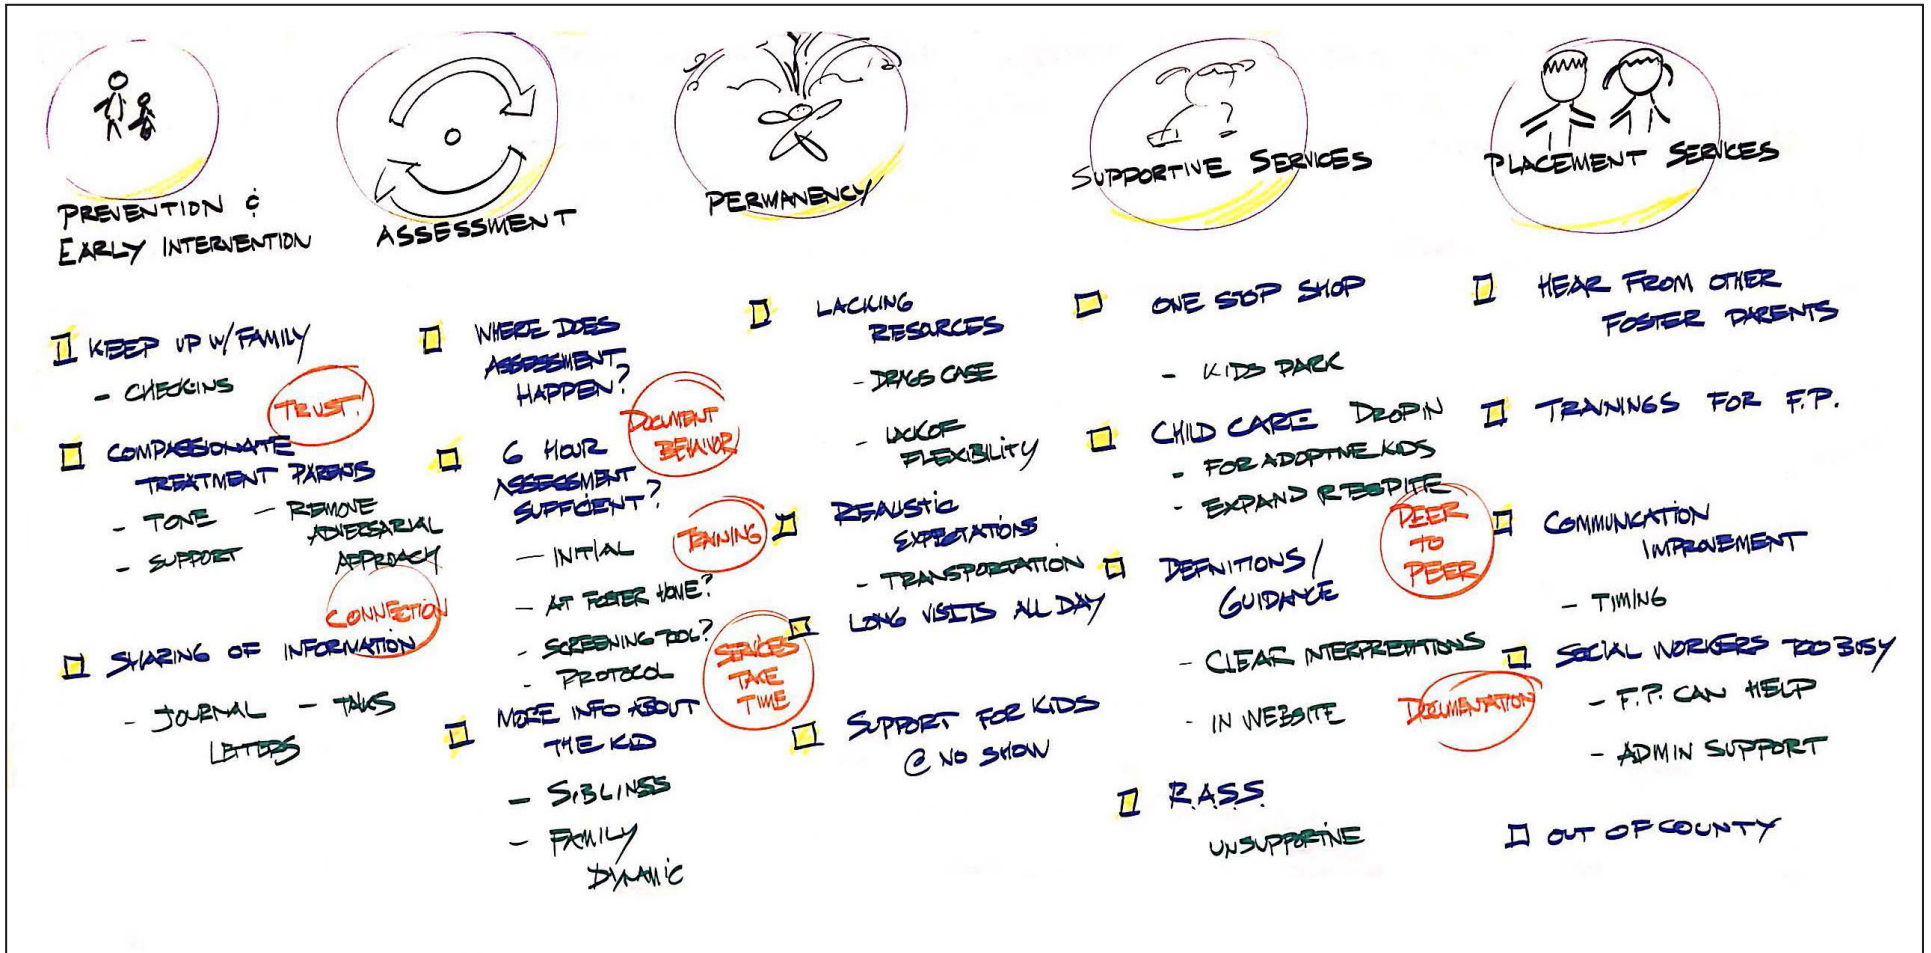 PREVENTION &
EARLY INTERVENTION
KEEP UP W/ FAMILY
- CHECKINS
TRUST!
COMPASSIONATE
TREATMENT PARENTS
- TONE
- REMOVE
ADVERSARIAL
APPROACH
- SUPPORT
CONNECTION
SHARING OF INFORMATION
- JOURNAL
LETTERS
- TALKS
ASSESSMENT
WHERE DOES
ASSESSMENT
HAPPEN?
DOCUMENT
BEHAVIOR
6 HOUR
ASSESSMENT
SUFFICIENT?
- INITIAL
TRAINING
- AT FOSTER HOME?
- SCREENING TOOL?
- PROTOCOL
SERVICES
TAKE
TIME
MORE INFO ABOUT
THE KID
- SIBLINGS
- FAMILY
DYNAMIC
PERMANENCY
LACKING
RESOURCES
- DRUGS CASE
- LACK OF
FLEXIBILITY
REALISTIC
EXPECTATIONS
- TRANSPORTATION
LONG VISITS ALL DAY
SUPPORT FOR KIDS
@ NO SHOW
SUPPORTIVE SERVICES
ONE STOP SHOP
- KIDS PARK
CHILD CARE DROP IN
- FOR ADOPTIVE KIDS
- EXPAND RESPITE
PEER
TO
PEER
DEFINITIONS/
GUIDANCE
- CLEAR INTERPRETATIONS
- IN WEBSITE
DOCUMENTATION
R.A.S.S.
UNSUPPORTIVE
PLACEMENT SERVICES
HEAR FROM OTHER
FOSTER PARENTS
TRAININGS FOR F.P.
COMMUNICATION
IMPROVEMENT
- TIMING
SOCIAL WORKERS TOO BUSY
- F.P. CAN HELP
- ADMIN SUPPORT
OUT OF COUNTY